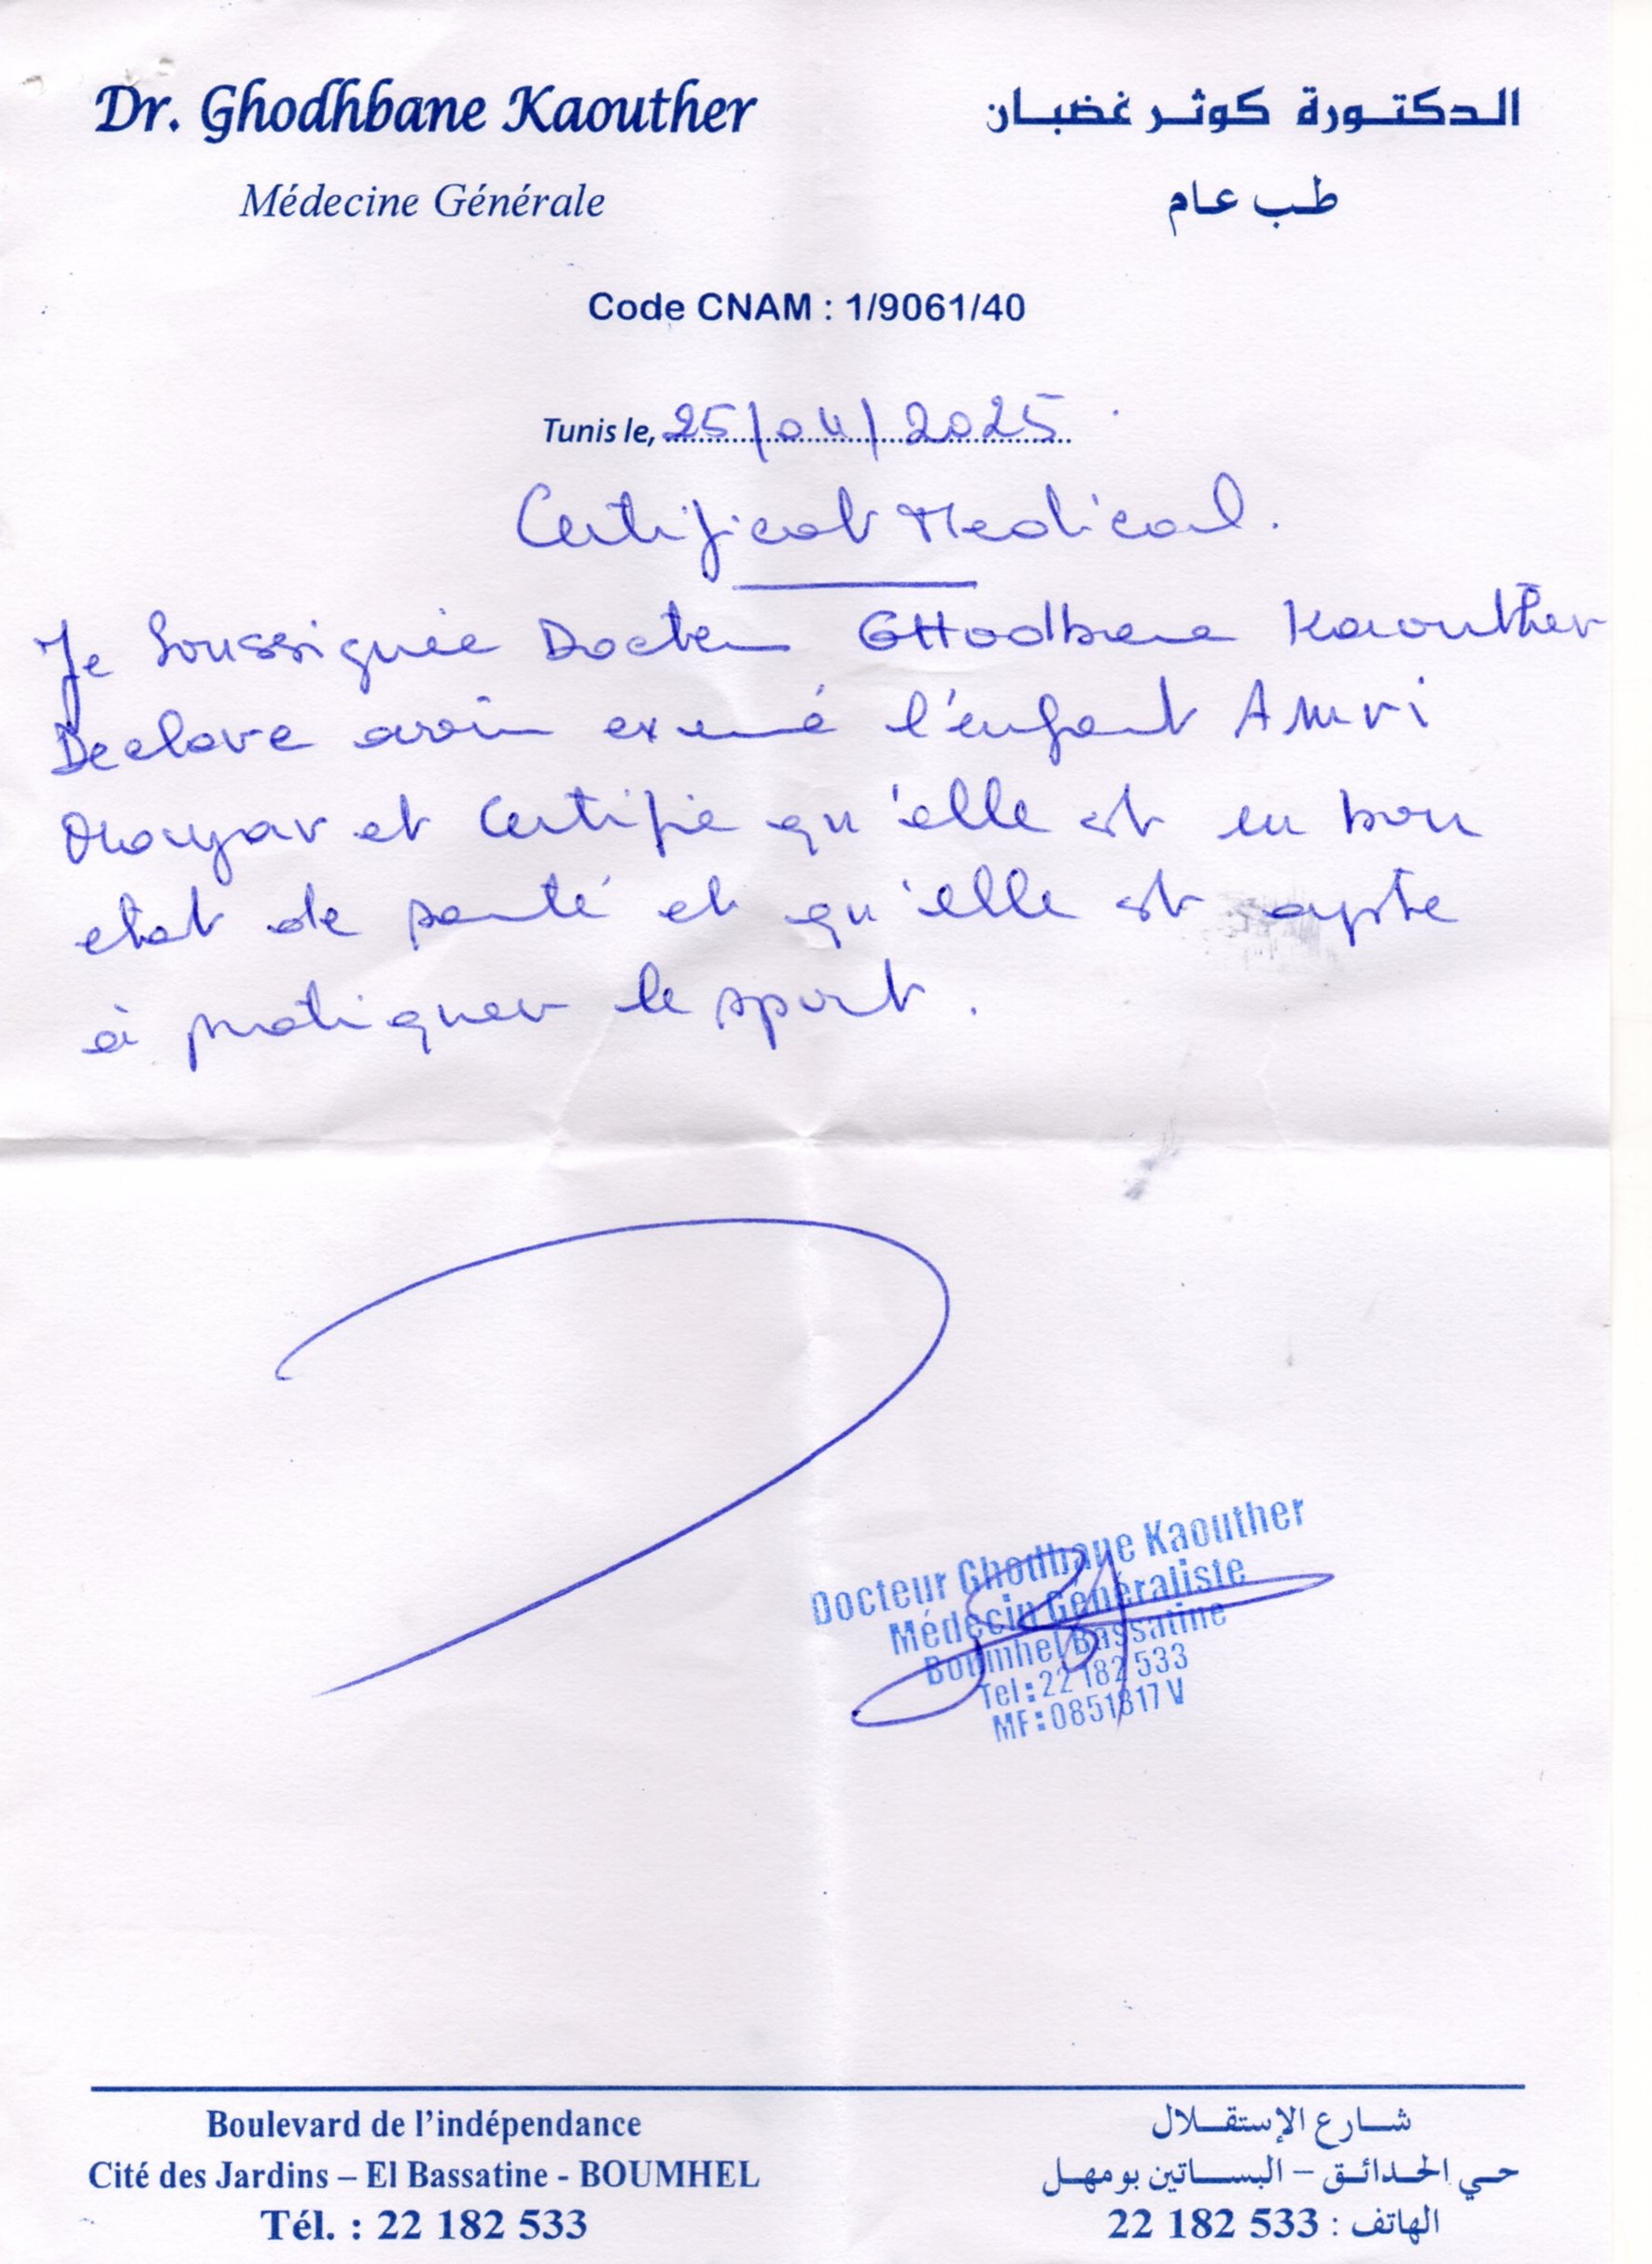 Dr. Ghodhbane Kaouther
الدكتورة كوثر غضبان
Médecine Générale
طب عام
Code CNAM : 1/9061/40
Tunis le, 25/04/2025
Certificat Medical.
Je Soussignée Docteur GHodbane Kaouther
Declare avoir examiné l'enfant Amri
et Certifie qu'elle est en bon
etat de santé et qu'elle est apte
à pratiquer le sport.
Docteur Ghodbane Kaouther
Médecin Généraliste
Boumhel Bassatine
Tel : 22 182 533
MF : 0851817 V
Boulevard de l'indépendance
شارع الإستقلال
Cité des Jardins – El Bassatine - BOUMHEL
حي الحدائق – البساتين بومهل
Tél. : 22 182 533
الهاتف : 533 182 22